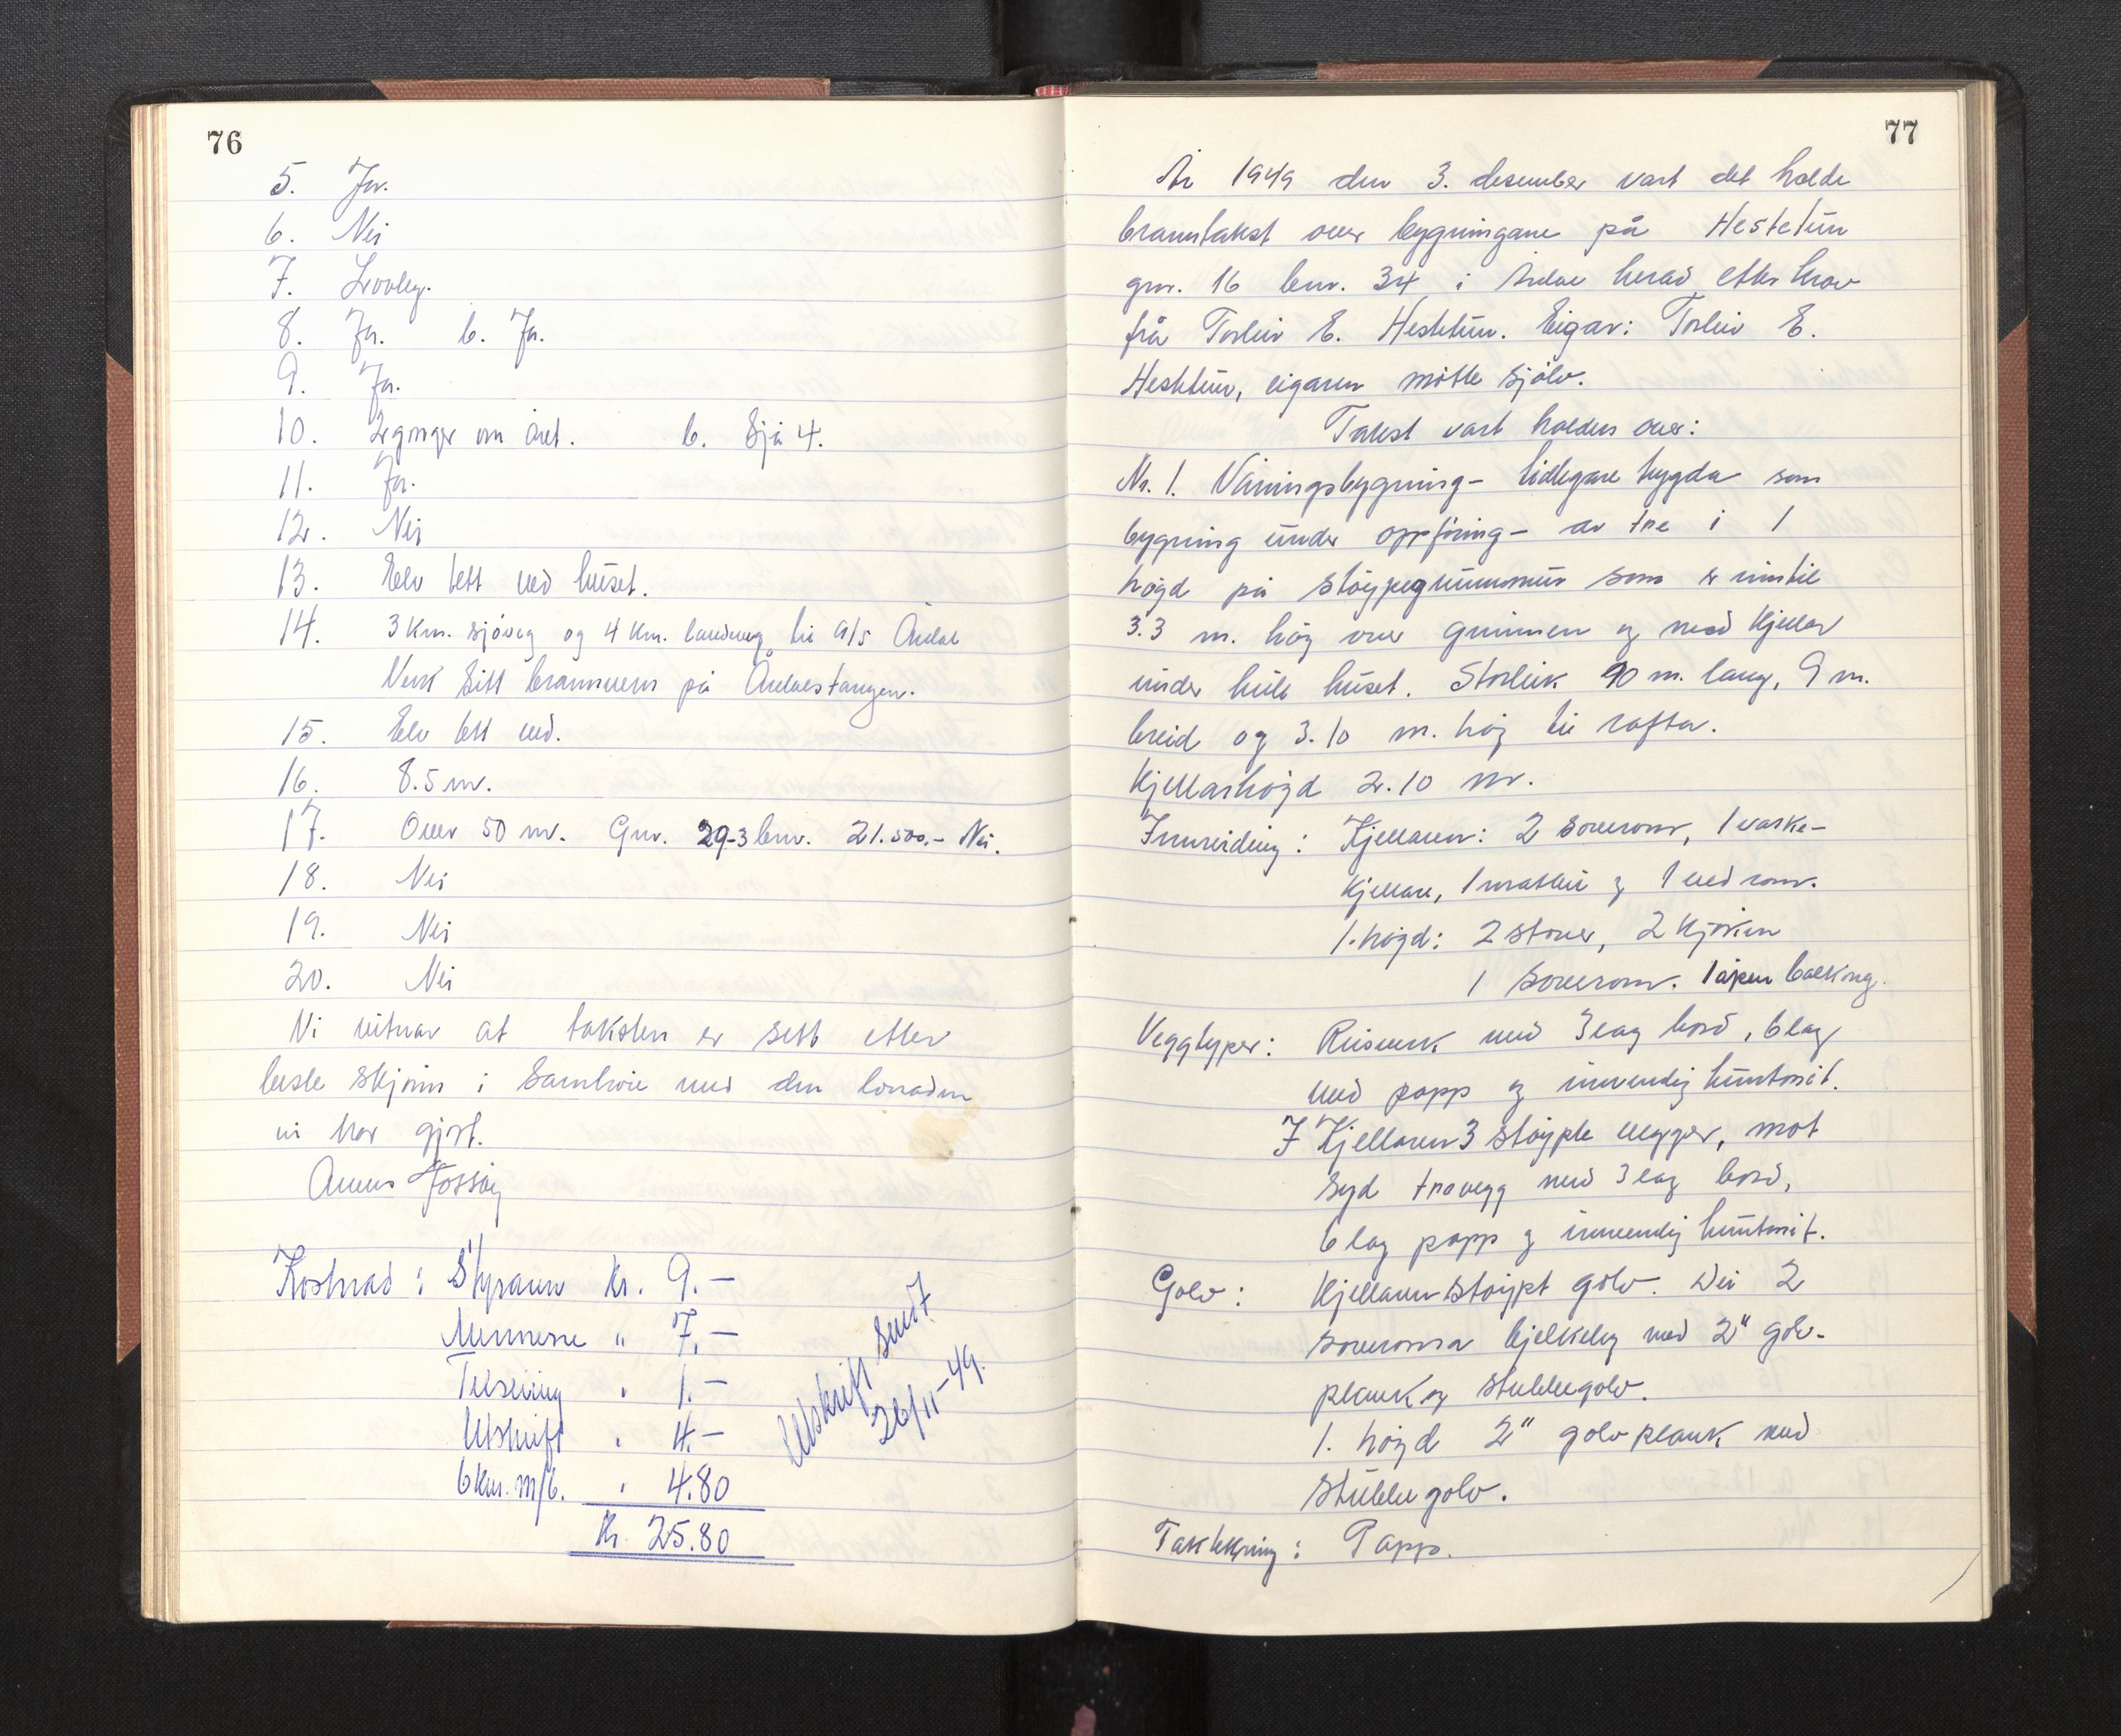 76
5. Ja.
6. Nei
7. Lovleg.
8. Ja. b. Ja.
9. Ja.
10. 2 gonger om året. b. Sjå 4.
11. Ja.
12. Nei
13. Elv tett ved huset.
14. 3 Km. sjöveg og 4 Km. landveg til A/S Årdal
Verk sitt brannvern på Årdalstangen.
15. Elv tett ved.
16. 8.5 m.
17. Over 50 m. Gnr. 29-3 bnr. 21.500.- Nei.
18. Nei
19. Nei
20. Nei
Vi vitnar at taksten er sett etter
beste skjönn i samhöve med den lovnaden
vi har gjort.
Kostnad: Styraren kr. 9.-
Mennene " 7.-
Telseiing " 1.-
Utskrift " 4.-
6 km. m/b. " 4.80
Kr. 25.80
Utskrift sendt
26/11-49.
77
År 1949 den 3. desember vart det halde
branntakst over bygningane på Hestetun
gnr. 16 bnr. 34 i Årdal herad etter krav
frå Torleiv E. Hestetun. Eigar: Torleiv E.
Hestetun, eigaren mötte sjölv.
Takst vart halden over:
Nr. 1. Våningsbygning - tidlegare trygda som
bygning under oppföring - av tre i 1
högd på stöypegrunnmur som er inntil
3.3 m. hög over grunnen og med kjellar
under heile huset. Storleik 90 m. lang, 9 m.
breid og 3.10 m. hög til rafta.
Kjellarhögd 2.10 m.
Innreiding: Kjellaren: 2 soverom, 1 vaske-
kjellar, 1 matbu og 1 ved rom.
1. högd: 2 stover, 2 kjöken
1 soverom. 1 åpen balkong.
Veggtyper: Reisverk med 3 lag bord, 6 lag
med papp og innvendig huntonit.
I Kjellaren 3 stöypte vegger, mot
syd trevegg med 3 lag bord,
6 lag papp og innvendig huntonit.
Golv: Kjellaren stöypt golv. Dei 2
soveromma bjelkelag med 2" golv-
plank og stubbegolv.
1. högd 2" golvplank med
stubbegolv.
Taktekning: Papp.